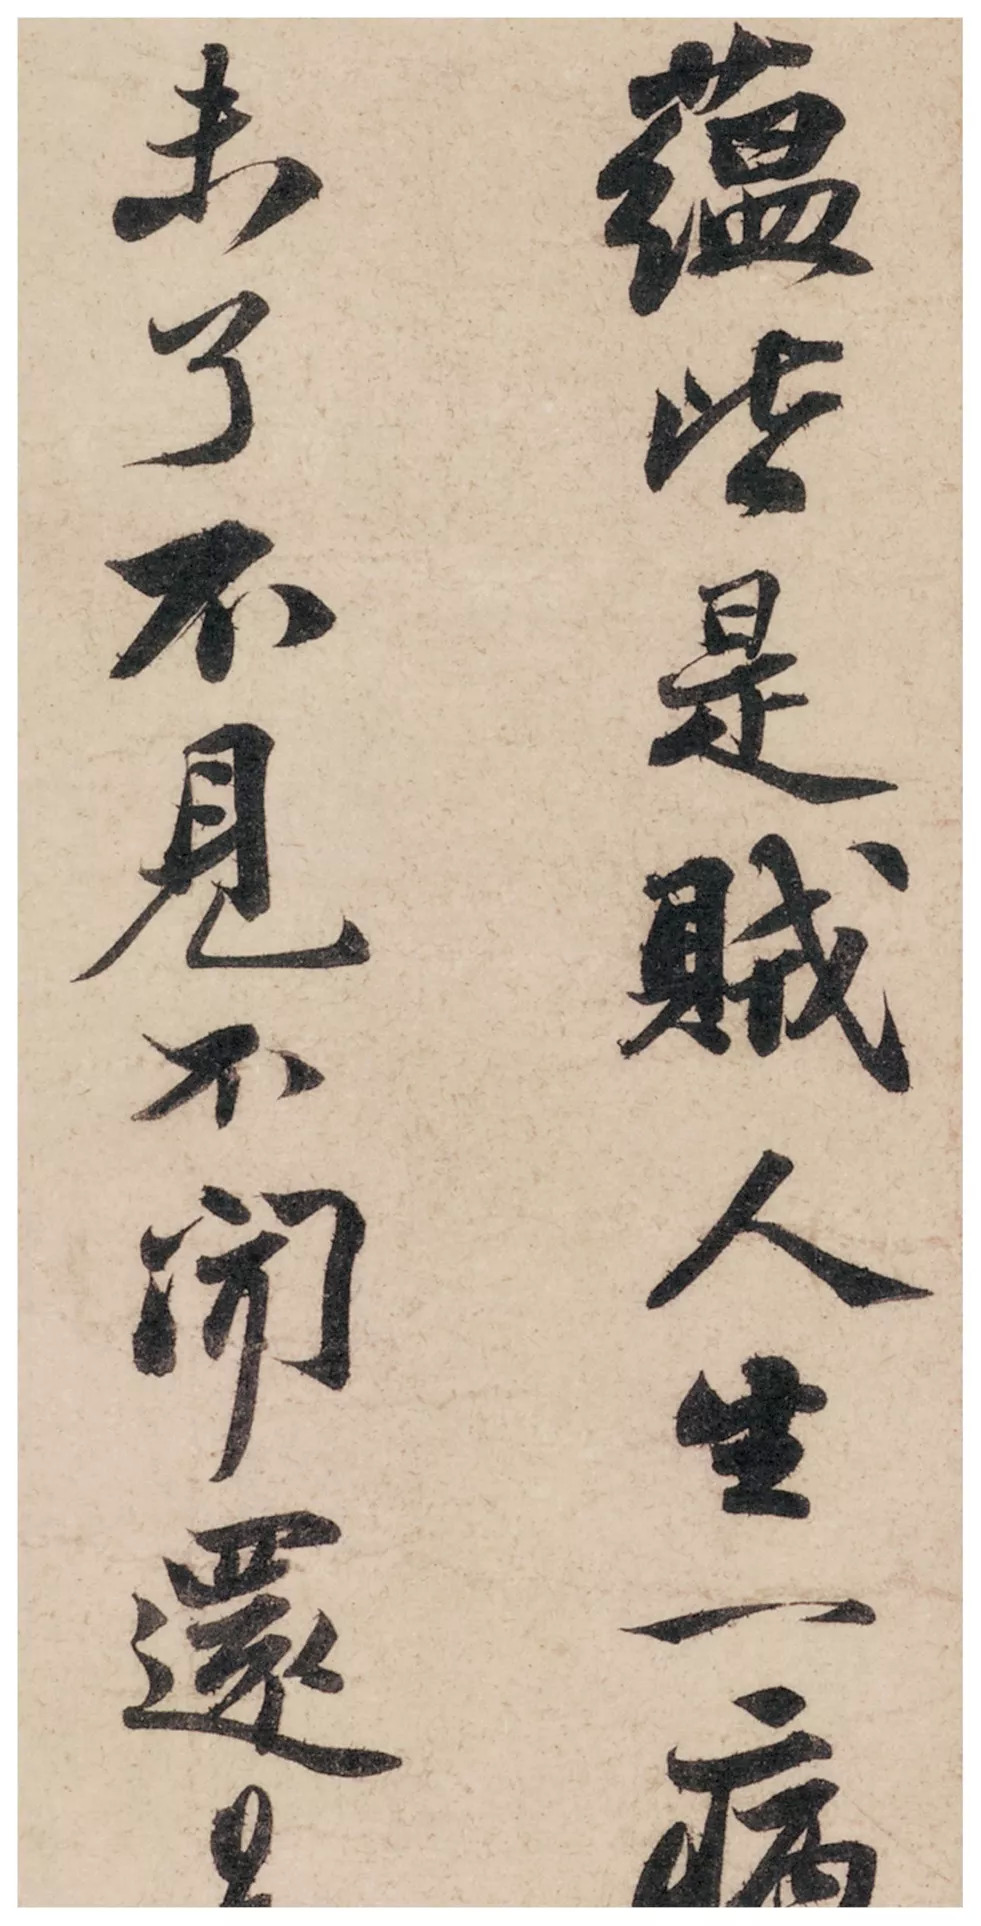 蘊皆是賊人生一病
未了不見不聞還